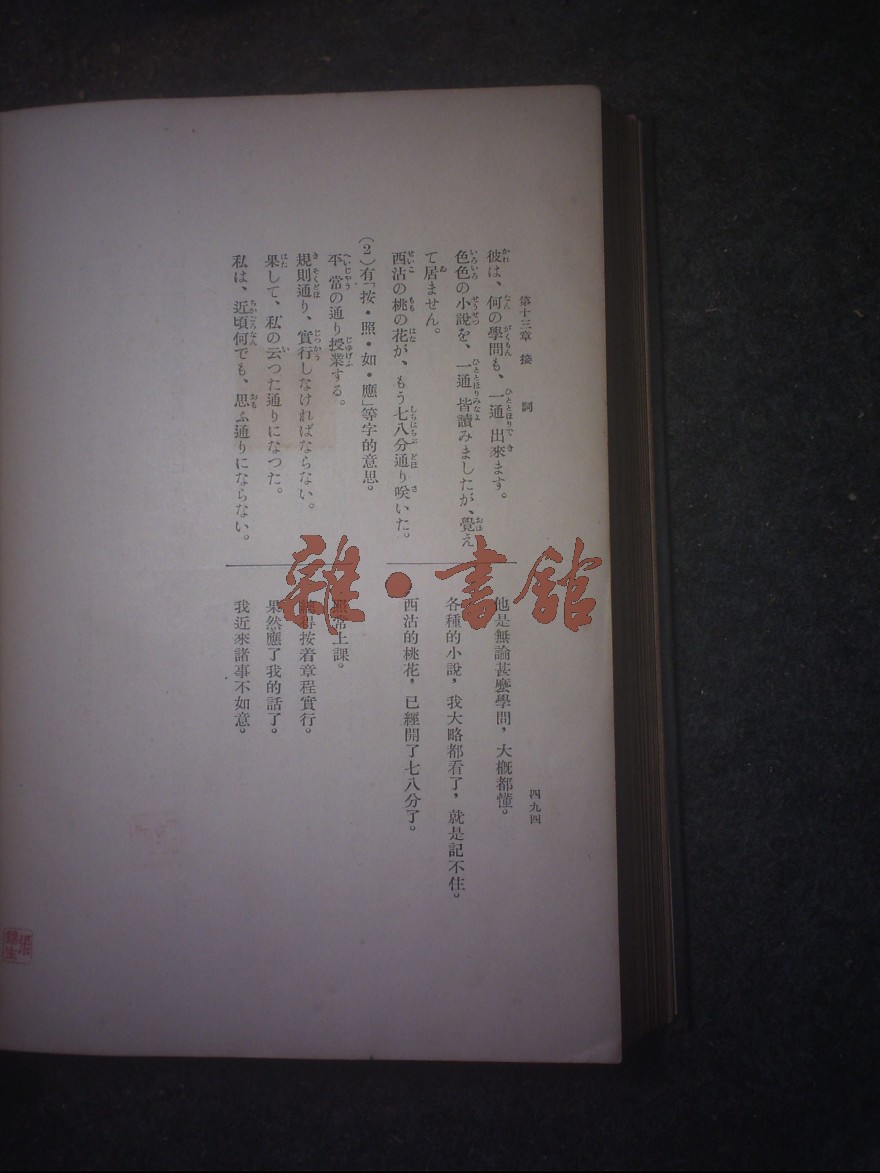 第十三章 接 詞
四九四
彼は、何の學問も、一通出來ます。
他是無論甚麼學問，大概都懂。
色色の小說を、一通皆讀みましたが、覺え
て居ません。
各種的小說，我大略都看了，就是記不住。
西沽の桃の花が、もう七八分通り咲いた。
西沽的桃花，已經開了七八分了。
(2)有「按・照・如・應」等字的意思。
平常の通り授業する。
常上課。
規則通り、實行しなければならない。
得按着章程實行。
果して、私の云つた通りになつた。
果然應了我的話了。
私は、近頃何でも、思ふ通りにならない。
我近來諸事不如意。
雜・書館